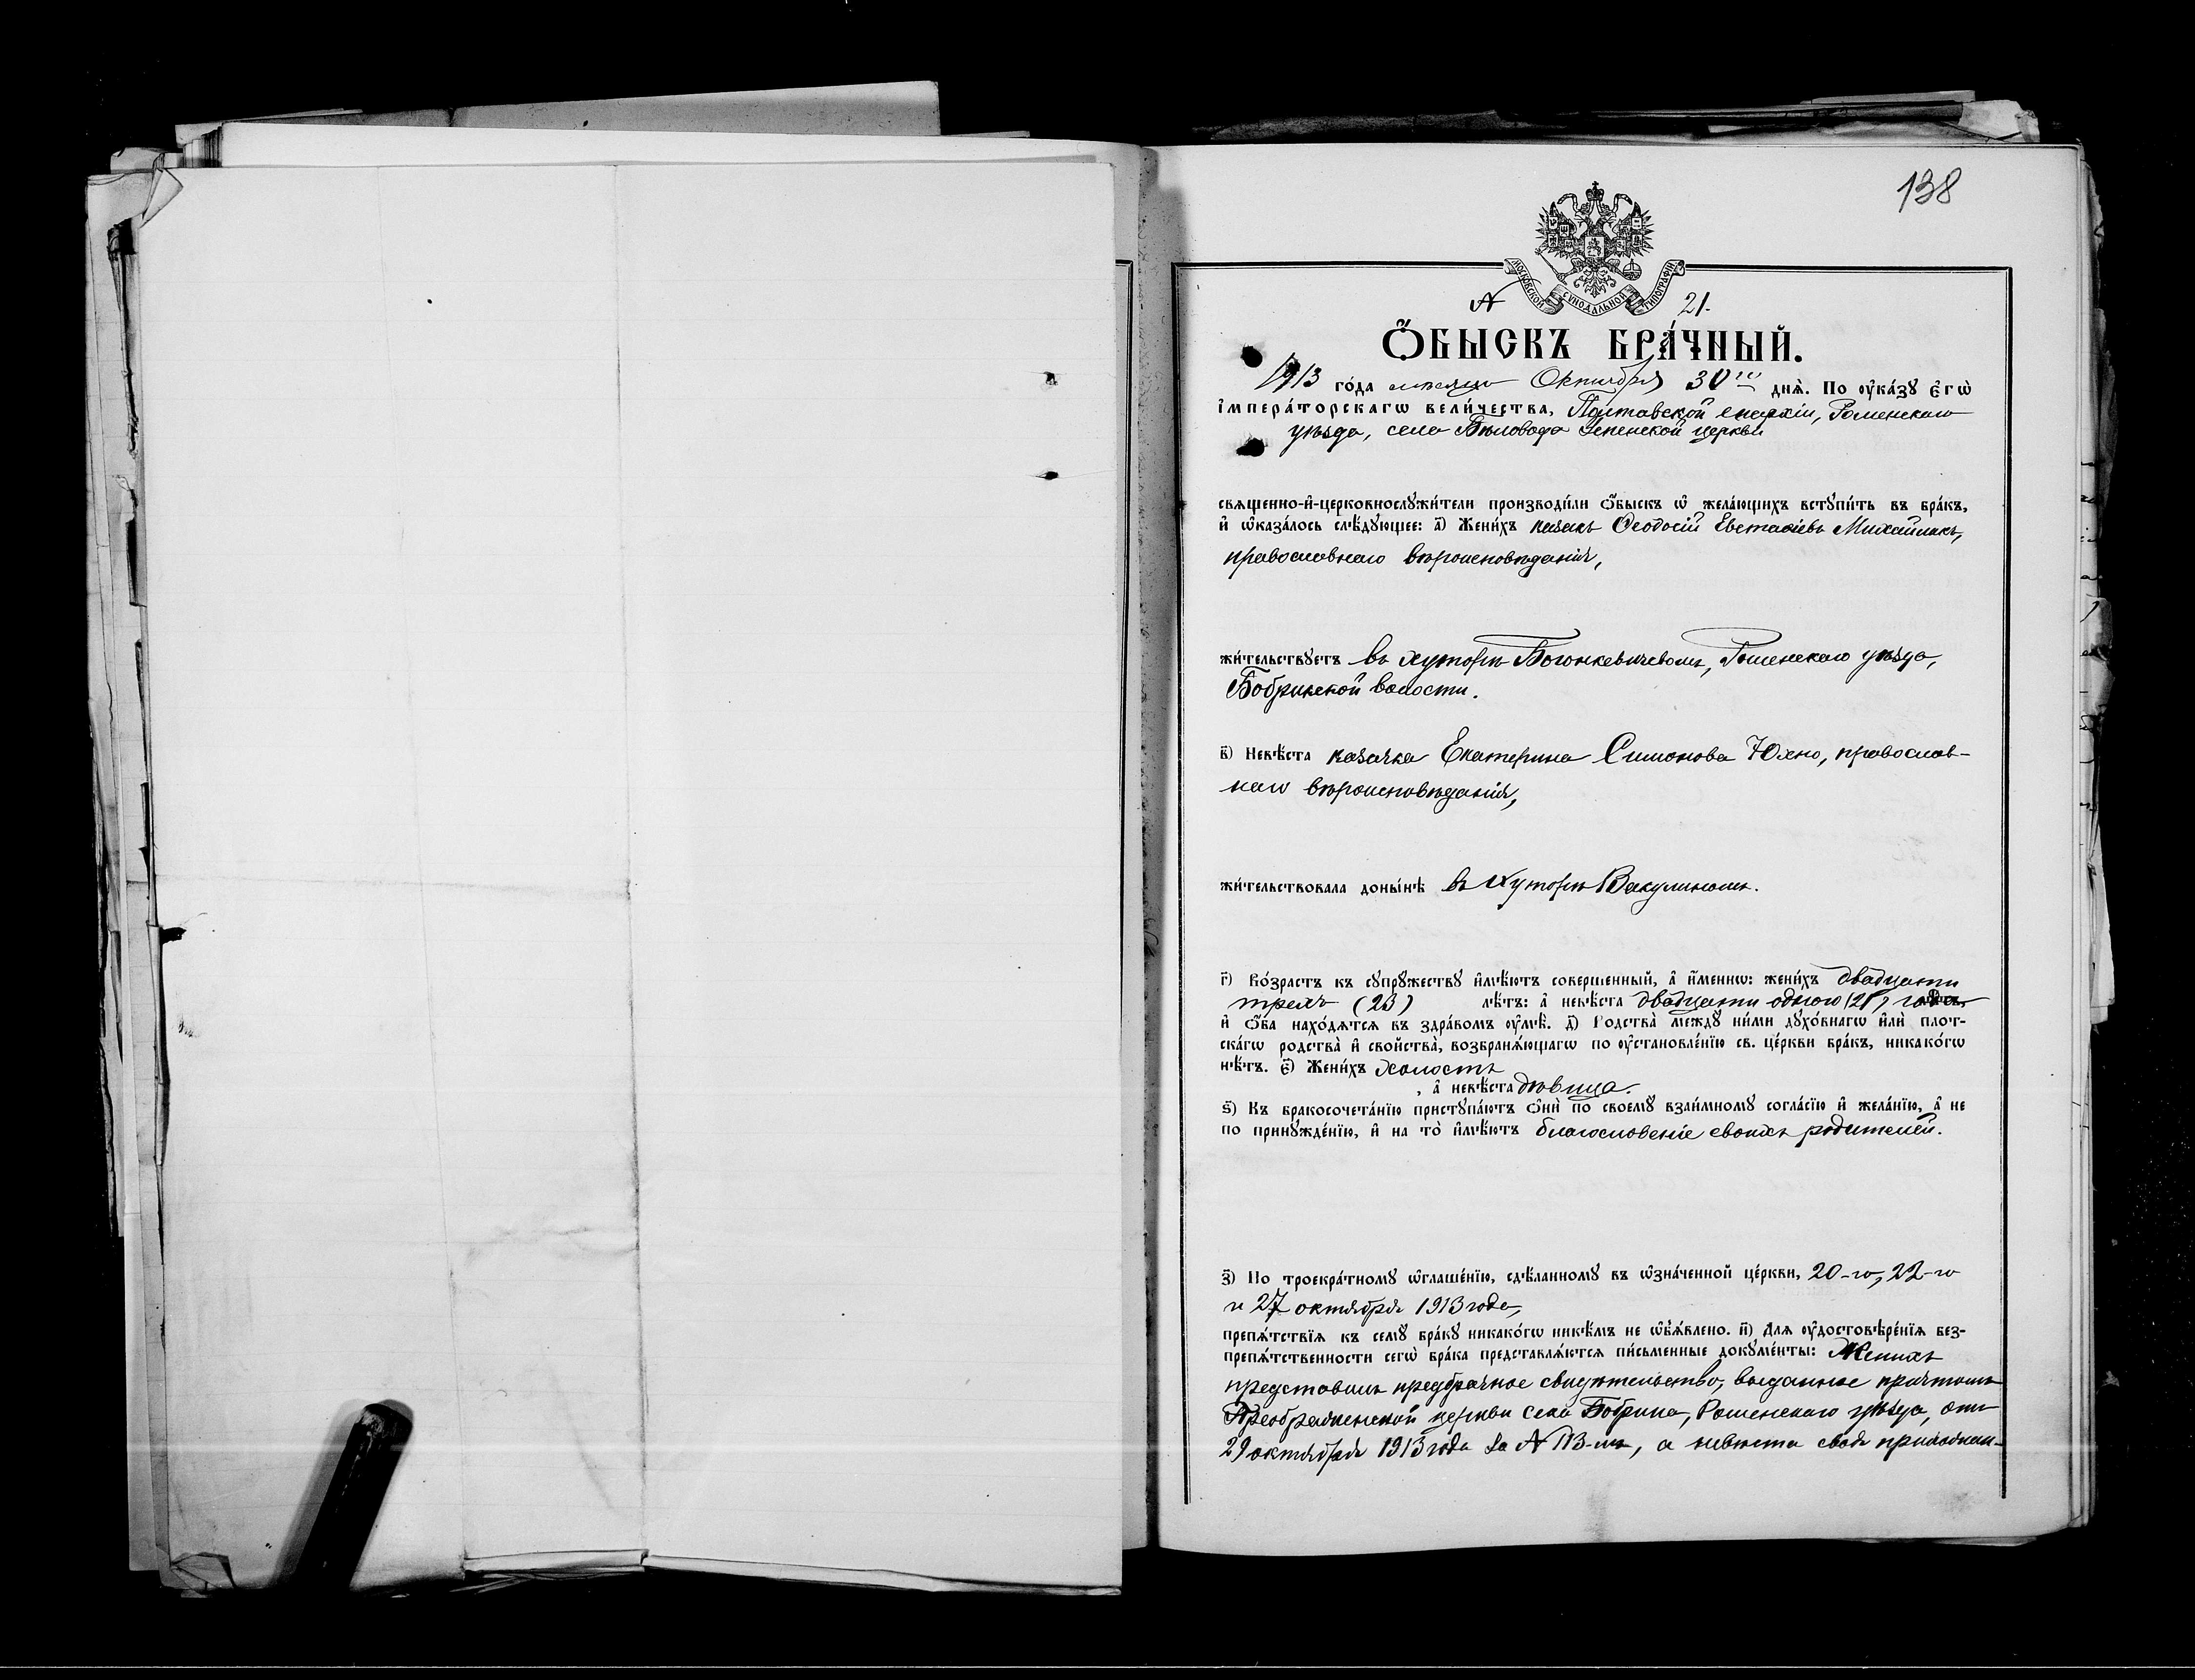 138
МОСКОВСКОЙ СѴНОДАЛЬНОЙ ТИПОГРАФІИ
№ 21.
Ѻ҆БЫСКЪ БРА́ЧНЫЙ.
1913 го́да мѣсяца Октября 30го днѧ̀. По ᲂу҆ка́зꙋ є҆гѡ̀
і҆мпера́торскагѡ вели́чества, Полтавской епархіи, Роменскаго
уѣзда, села Бѣловода Успенской церкви
свѧщенно-и҆-церковнослꙋжи́тели производи́ли ѻ҆́быскъ ѡ҆ жела́ющихъ встꙋпи́ть въ бра́къ,
и҆ ѡ҆каза́лось слѣ́дꙋющее: а҃) Жени́хъ казакъ Ѳеодосій Евстаѳіевъ Михайликъ,
православнаго вѣроисповѣданія,
жи́тельствꙋетъ въ хуторѣ Роменскаго уѣзда,
Бобрикской волости.
в҃) Невѣ́ста казачка Екатерина Симонова Юхно, православ-
наго вѣроисповѣданія,
жи́тельствовала доны́нѣ въ хуторѣ Вакулиномъ.
г҃) Во́зрастъ къ сꙋпрꙋ́жествꙋ и҆мѣ́ютъ соверше́нный, а҆ и҆́меннѡ: жени́хъ двадцати
трехъ (23) лѣ́тъ: а҆ невѣ́ста двадцати одного (21) года
и҆ ѻ҆́ба нахо́дѧтсѧ въ здра́вомъ ᲂу҆мѣ̀. д҃) Родства̀ междꙋ̀ ни́ми дꙋхо́внагѡ и҆лѝ плот-
ска́гѡ родства̀ и҆ свойства̀, возбранѧ́ющагѡ по ᲂу҆становле́нїю св. це́ркви бра́къ, никако́гѡ
нѣ́тъ. є҃) Жени́хъ холостъ
, а҆ невѣ́ста дѣвица.
ѕ҃) Къ бракосочета́нїю пристꙋпа́ютъ ѻ҆нѝ по своемꙋ̀ взаи́мномꙋ согла́сїю и҆ жела́нїю, а҆ не
по принꙋжде́нїю, и҆ на то̀ и҆мѣ́ютъ благословеніе своихъ родителей.
з҃) По троекра́тномꙋ ѡ҆глаше́нїю, сдѣ́ланномꙋ въ ѡ҆зна́ченной це́ркви, 20-го, 22-го
и 27 октября 1913 года,
препѧ́тствїѧ къ семꙋ̀ бра́кꙋ никако́гѡ никѣ́мъ не ѡ҆б̾ѧ́влено. и҃) Для ᲂу҆достовѣре́нїѧ без-
препѧ́тственности сегѡ̀ бра́ка представлѧ́ютсѧ пи́сьменные докꙋме́нты: Женихъ
представилъ предбрачное свидѣтельство, выданное причтомъ
Преображенской церкви села Бобрика, Роменскаго уѣзда, отъ
29 октября 1913 года за № 113-мъ, а невѣста своя прихожан-